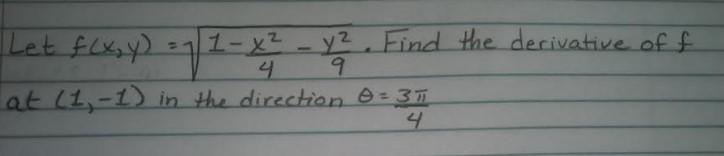 Let f(x,y) = √(1 - x²/4 - y²/9). Find the derivative of f
at (1,-1) in the direction θ = 3π/4